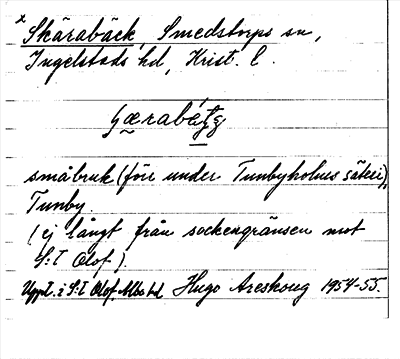 x Skärabäck Smedstorps sn,
Ingelstads hd, Krist. l.
småbruk (förr under Tunbyholms säteri),
Tunby
(ej långt från sockengränsen mot
S:t Olof).
Uppt. i S:t Olof Albo hd Hugo Areskoug 1954-55.